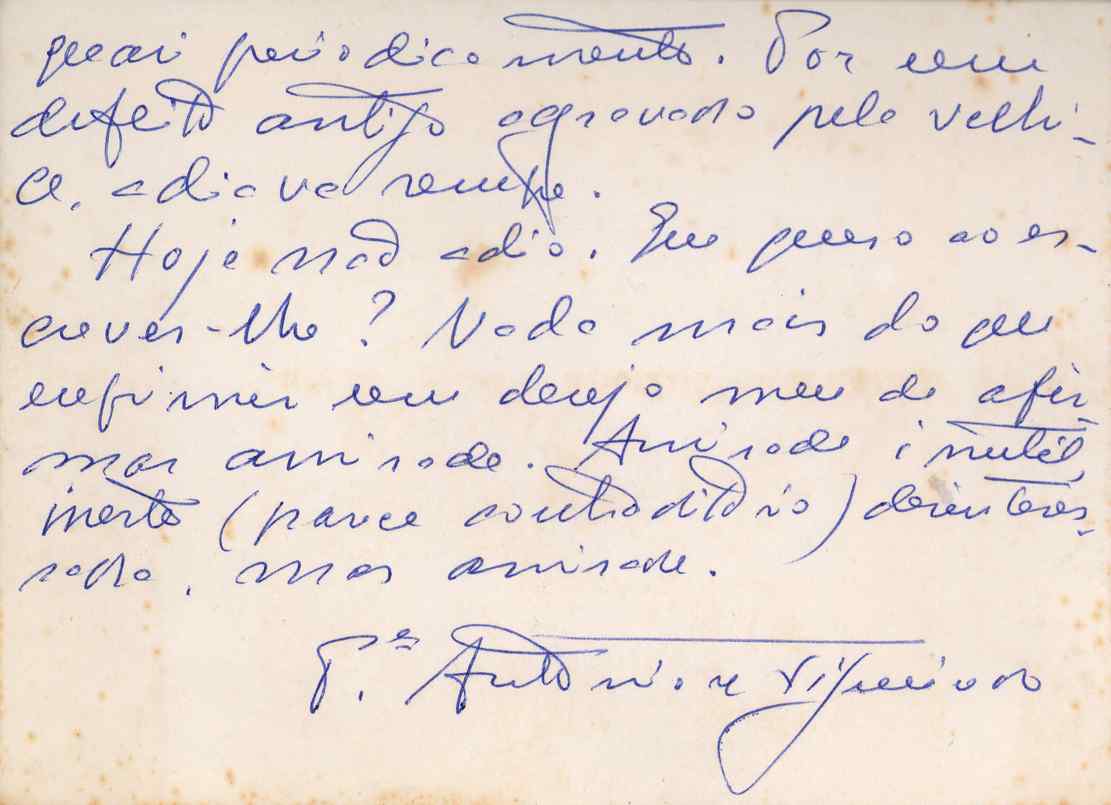 quasi periodicamente. Por um
defeito antigo agravado pela velhi-
ce, adiava sempre.
Hoje não adio. Que quero ao es-
crever-lhe? Nada mais do que
exprimir um desejo meu de afir-
mar amizade. Amizade inútil,
inerte (parece contraditório) desinteres-
sada, mas amizade.
P.e António